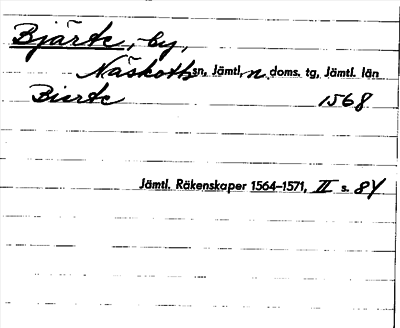 Bjärte, by,
Näskotts sn, Jämtl, n. doms. tg, Jämtl. län
Bierte 1568
Jämtl. Räkenskaper 1564–1571, II s. 84